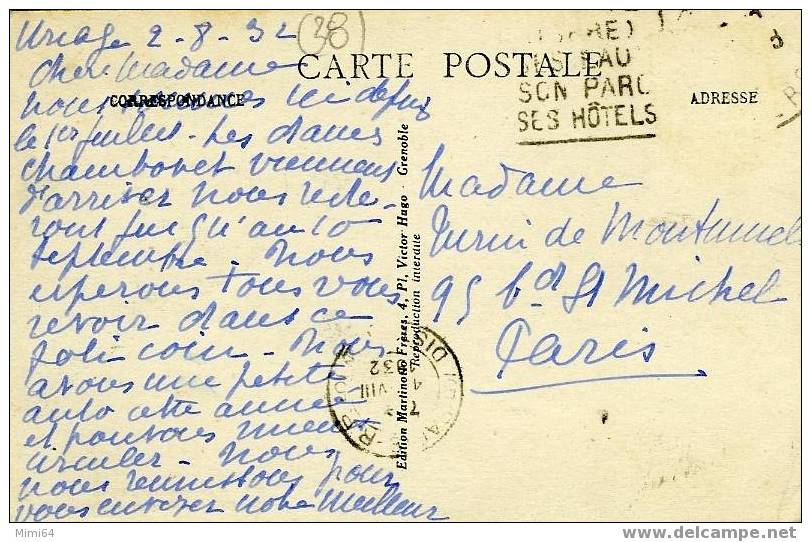 Uriage 2-8-32
38
Chère Madame
CARTE POSTALE
CORRESPONDANCE
ADRESSE
nous sommes ici depuis
le 1er juillet. Les dames
viennent
d'arriver nous reste-
rons jusqu'au 10
septembre - Nous
espérons tous vous
revoir dans ce
joli coin - Nous
avons une petite
auto cette année
et pouvons mieux
circuler - Nous
nous réunissons pour
vous envoyer notre meilleur
SON PARC
SES HÔTELS
Madame
de
95 bd St Michel
Paris
Edition Martinotto Frères, 4, Pl. Victor Hugo - Grenoble
Reproduction interdite
VIII
32
Mimi64
delcampe.net